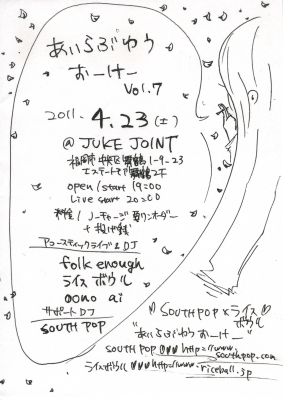 あいらぶゆう
おーけー
Vol.7
2011. 4.23 (土)
@ JUKE JOINT
福岡市中央区舞鶴1-9-23
エステートモア舞鶴2F
open/start 19:00
Live start 20:00
料金 / ノーチャージ 要ワンオーダー
+ 投げ銭
アコースティックライブ & DJ
folk enough
ライスボウル
oono ai
サポートDJ
SOUTH POP
SOUTH POP × ライス
ボウル
"あいらぶゆうおーけー"
SOUTH POP http://www.
southpop.com
ライスボウル http://www.
riceball.jp